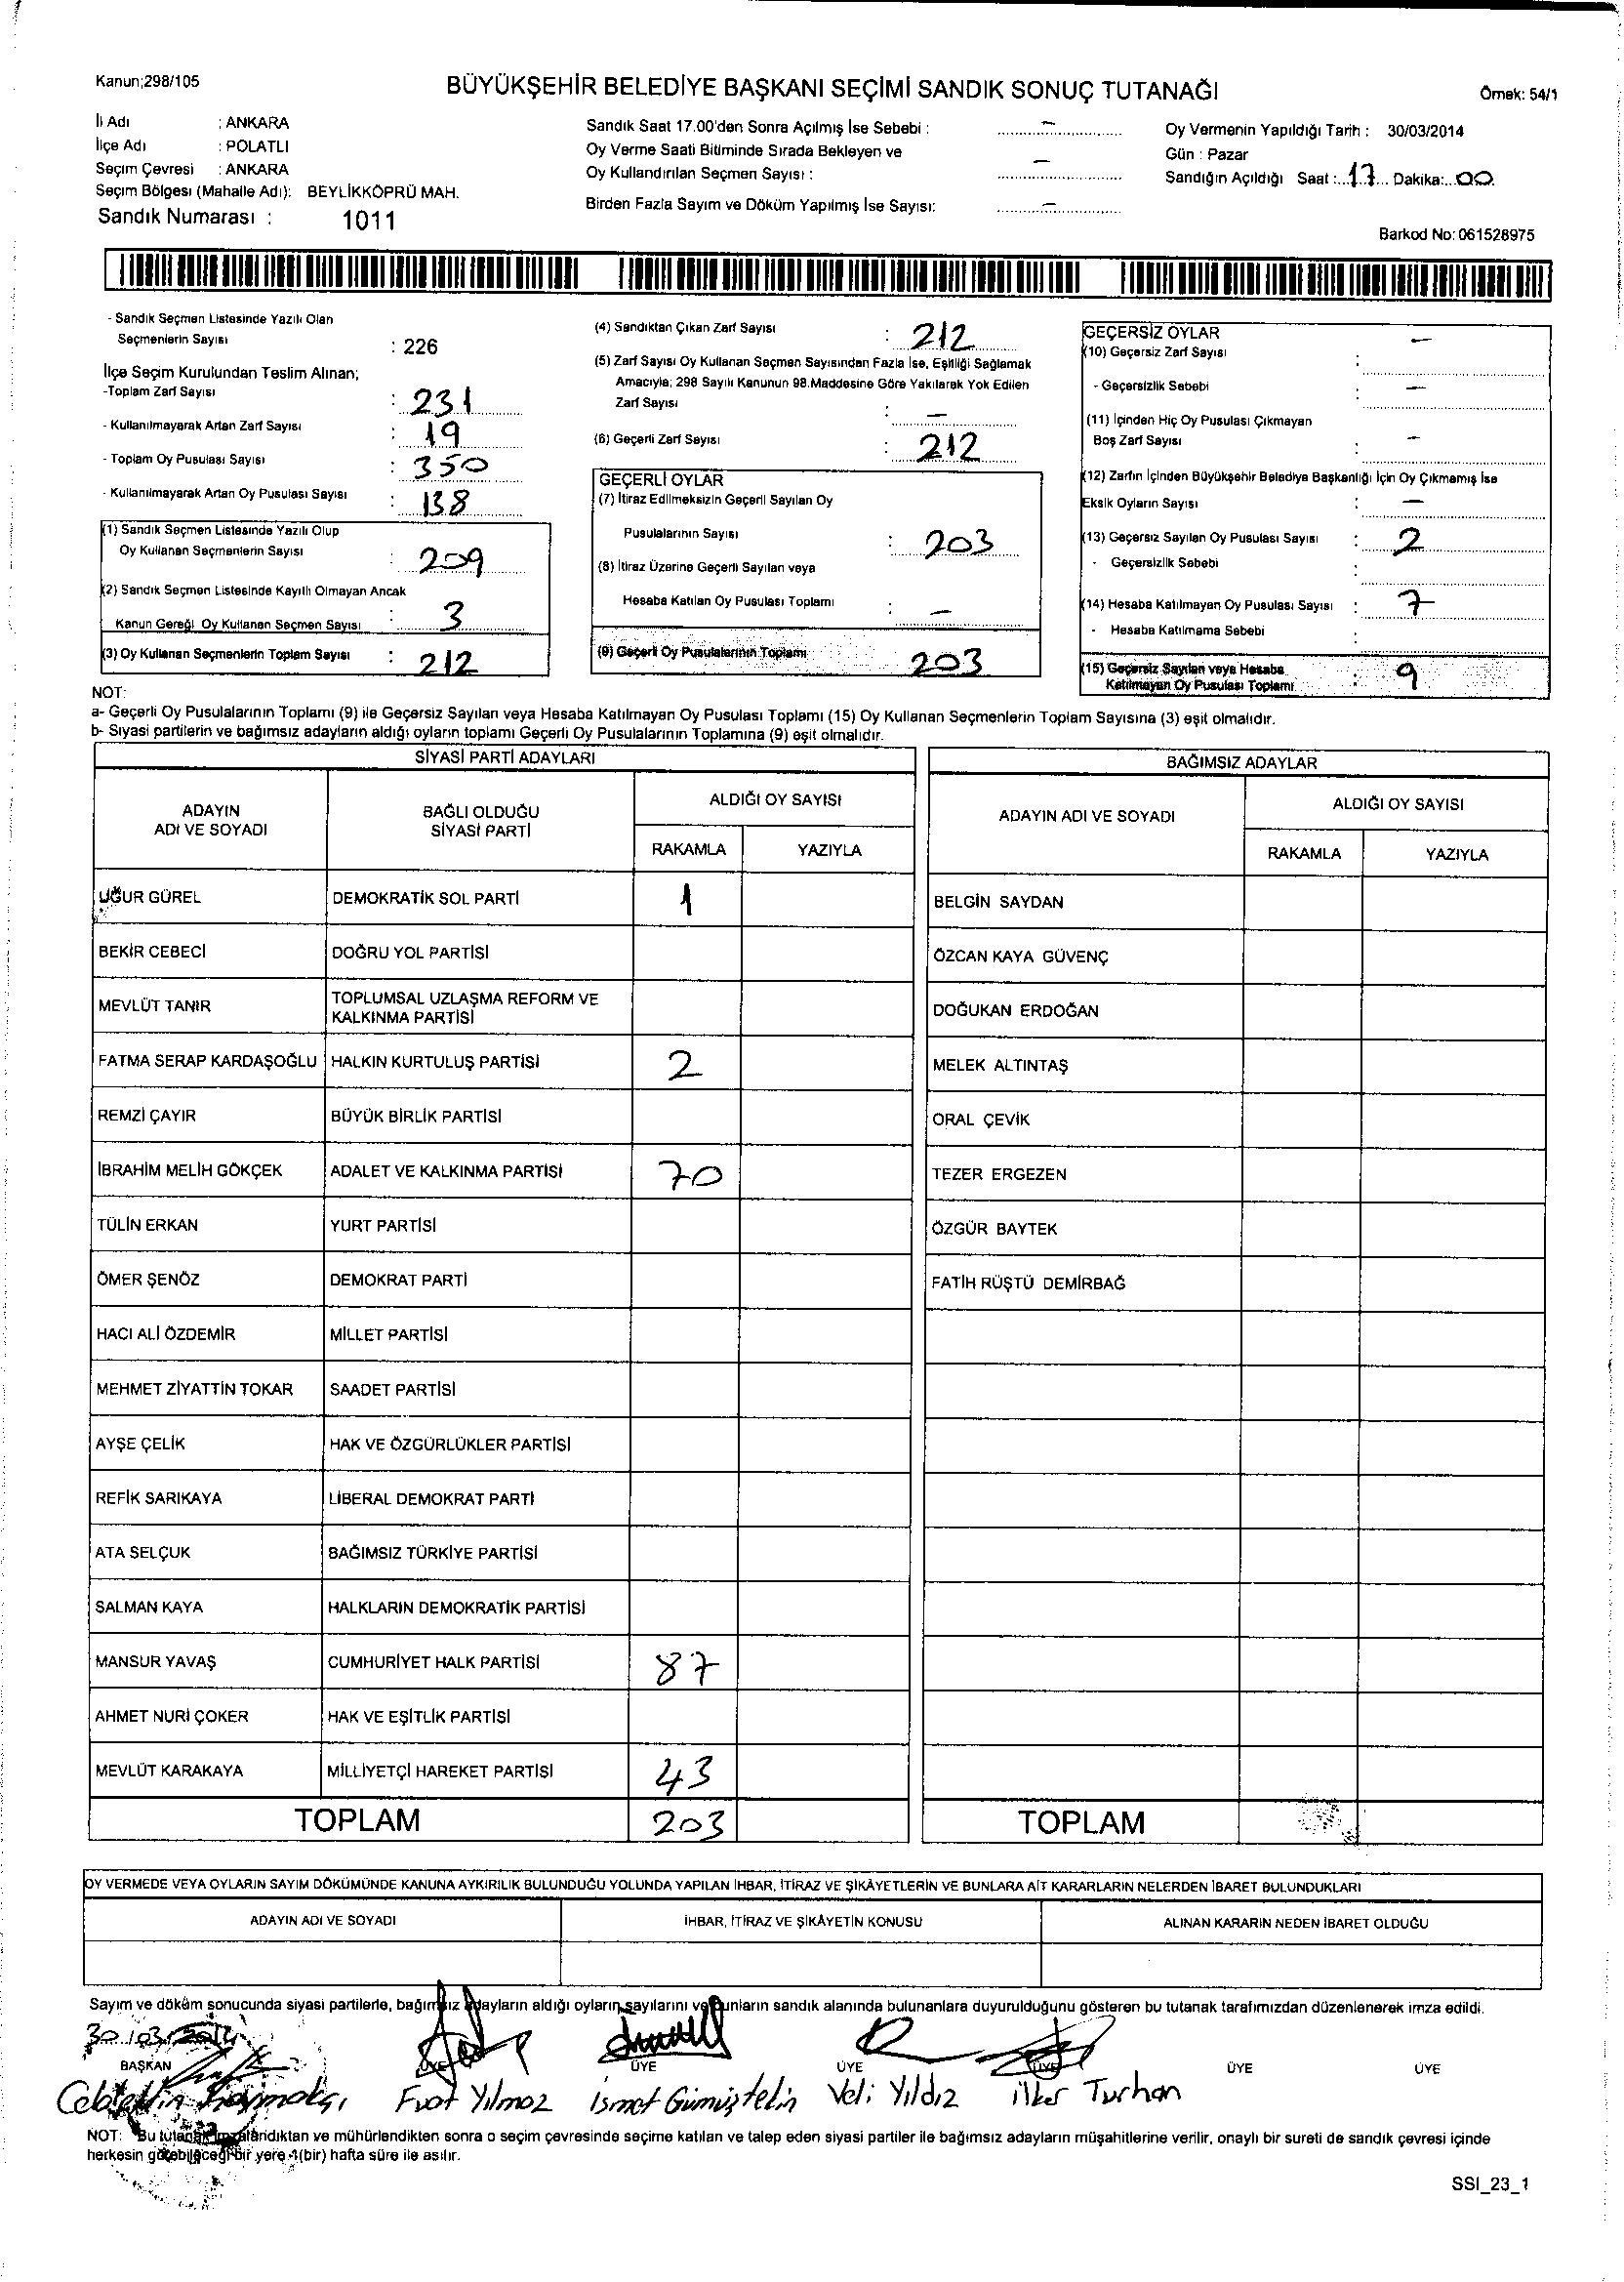 Kanun;298/105
BÜYÜKŞEHİR BELEDİYE BAŞKANI SEÇİMİ SANDIK SONUÇ TUTANAĞI
Örnek: 54/1
İl Adı : ANKARA
İlçe Adı : POLATLI
Seçim Çevresi : ANKARA
Seçim Bölgesi (Mahalle Adı): BEYLİKKÖPRÜ MAH.
Sandık Numarası : 1011
Sandık Saat 17.00'den Sonra Açılmış İse Sebebi : –
Oy Verme Saati Bitiminde Sırada Bekleyen ve
Oy Kullandırılan Seçmen Sayısı : –
Birden Fazla Sayım ve Döküm Yapılmış İse Sayısı: –
Oy Vermenin Yapıldığı Tarih : 30/03/2014
Gün : Pazar
Sandığın Açıldığı Saat :...17... Dakika:..00.
Barkod No: 061528975
- Sandık Seçmen Listesinde Yazılı Olan
Seçmenlerin Sayısı : 226
İlçe Seçim Kurulundan Teslim Alınan;
-Toplam Zarf Sayısı : 231
- Kullanılmayarak Artan Zarf Sayısı : 19
- Toplam Oy Pusulası Sayısı : 350
- Kullanılmayarak Artan Oy Pusulası Sayısı : 138
(1) Sandık Seçmen Listesinde Yazılı Olup
Oy Kullanan Seçmenlerin Sayısı : 209
(2) Sandık Seçmen Listesinde Kayıtlı Olmayan Ancak
Kanun Gereği Oy Kullanan Seçmen Sayısı : 3
(3) Oy Kullanan Seçmenlerin Toplam Sayısı : 212
(4) Sandıktan Çıkan Zarf Sayısı : 212
(5) Zarf Sayısı Oy Kullanan Seçmen Sayısından Fazla İse, Eşitliği Sağlamak
Amacıyla; 298 Sayılı Kanunun 98.Maddesine Göre Yakılarak Yok Edilen
Zarf Sayısı : –
(6) Geçerli Zarf Sayısı : 212
GEÇERLİ OYLAR
(7) İtiraz Edilmeksizin Geçerli Sayılan Oy
Pusulalarının Sayısı : 203
(8) İtiraz Üzerine Geçerli Sayılan veya
Hesaba Katılan Oy Pusulası Toplamı : –
(9) Geçerli Oy Pusulalarının Toplamı 203
GEÇERSİZ OYLAR
(10) Geçersiz Zarf Sayısı : –
- Geçersizlik Sebebi : –
(11) İçinden Hiç Oy Pusulası Çıkmayan
Boş Zarf Sayısı : –
(12) Zarfın İçinden Büyükşehir Belediye Başkanlığı İçin Oy Çıkmamış İse
Eksik Oyların Sayısı : –
(13) Geçersiz Sayılan Oy Pusulası Sayısı : 2
- Geçersizlik Sebebi :
(14) Hesaba Katılmayan Oy Pusulası Sayısı : 7
- Hesaba Katılmama Sebebi :
(15) Geçersiz Sayılan veya Hesaba
Katılmayan Oy Pusulası Toplamı : 9
NOT:
a- Geçerli Oy Pusulalarının Toplamı (9) ile Geçersiz Sayılan veya Hesaba Katılmayan Oy Pusulası Toplamı (15) Oy Kullanan Seçmenlerin Toplam Sayısına (3) eşit olmalıdır.
b- Siyasi partilerin ve bağımsız adayların aldığı oyların toplamı Geçerli Oy Pusulalarının Toplamına (9) eşit olmalıdır.
SİYASİ PARTİ ADAYLARI
ADAYIN ADI VE SOYADI
BAĞLI OLDUĞU SİYASİ PARTİ
ALDIĞI OY SAYISI
RAKAMLA YAZIYLA
UĞUR GÜREL DEMOKRATİK SOL PARTİ 1
BEKİR CEBECİ DOĞRU YOL PARTİSİ
MEVLÜT TANIR TOPLUMSAL UZLAŞMA REFORM VE
KALKINMA PARTİSİ
FATMA SERAP KARDAŞOĞLU HALKIN KURTULUŞ PARTİSİ 2
REMZİ ÇAYIR BÜYÜK BİRLİK PARTİSİ
İBRAHİM MELİH GÖKÇEK ADALET VE KALKINMA PARTİSİ 70
TÜLİN ERKAN YURT PARTİSİ
ÖMER ŞENÖZ DEMOKRAT PARTİ
HACI ALİ ÖZDEMİR MİLLET PARTİSİ
MEHMET ZİYATTİN TOKAR SAADET PARTİSİ
AYŞE ÇELİK HAK VE ÖZGÜRLÜKLER PARTİSİ
REFİK SARIKAYA LİBERAL DEMOKRAT PARTİ
ATA SELÇUK BAĞIMSIZ TÜRKİYE PARTİSİ
SALMAN KAYA HALKLARIN DEMOKRATİK PARTİSİ
MANSUR YAVAŞ CUMHURİYET HALK PARTİSİ 87
AHMET NURİ ÇOKER HAK VE EŞİTLİK PARTİSİ
MEVLÜT KARAKAYA MİLLİYETÇİ HAREKET PARTİSİ 43
TOPLAM 203
BAĞIMSIZ ADAYLAR
ADAYIN ADI VE SOYADI
ALDIĞI OY SAYISI
RAKAMLA YAZIYLA
BELGİN SAYDAN
ÖZCAN KAYA GÜVENÇ
DOĞUKAN ERDOĞAN
MELEK ALTINTAŞ
ORAL ÇEVİK
TEZER ERGEZEN
ÖZGÜR BAYTEK
FATİH RÜŞTÜ DEMİRBAĞ
TOPLAM
OY VERMEDE VEYA OYLARIN SAYIM DÖKÜMÜNDE KANUNA AYKIRILIK BULUNDUĞU YOLUNDA YAPILAN İHBAR, İTİRAZ VE ŞİKÂYETLERİN VE BUNLARA AİT KARARLARIN NELERDEN İBARET BULUNDUKLARI
ADAYIN ADI VE SOYADI İHBAR, İTİRAZ VE ŞİKÂYETİN KONUSU ALINAN KARARIN NEDEN İBARET OLDUĞU
Sayım ve döküm sonucunda siyasi partilerle, bağımsız adayların aldığı oyların sayılarını ve bunların sandık alanında bulunanlara duyurulduğunu gösteren bu tutanak tarafımızdan düzenlenerek imza edildi.
30.03.2014
BAŞKAN ÜYE ÜYE ÜYE ÜYE ÜYE ÜYE
Fuat Yılmaz İsmet Gümüştekin Veli Yıldız İlker Turhan
NOT: Bu tutanak imzalandıktan ve mühürlendikten sonra o seçim çevresinde seçime katılan ve talep eden siyasi partiler ile bağımsız adayların müşahitlerine verilir, onaylı bir sureti de sandık çevresi içinde
herkesin görebileceği bir yere 1(bir) hafta süre ile asılır.
SSI_23_1